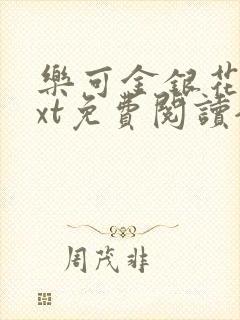 樂可金銀花
xt免費閱讀
周茂非